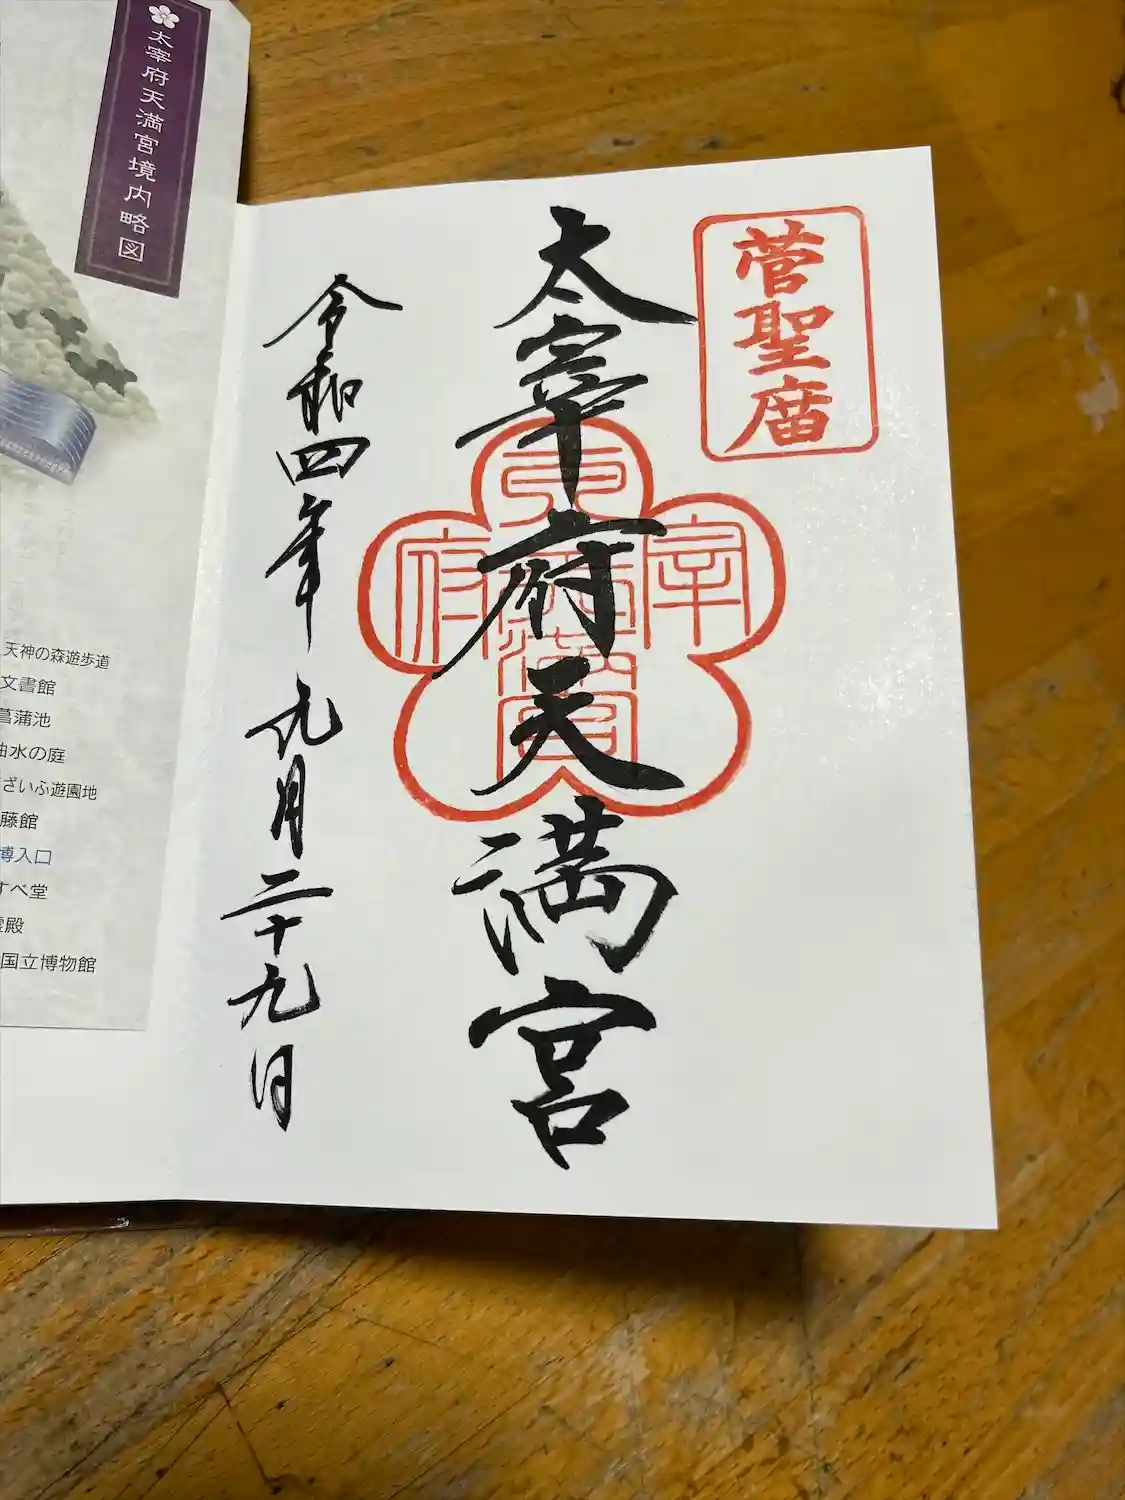 菅聖廟
太宰府天満宮
太宰府天満宮
令和四年九月二十九日
太宰府天満宮境内略図
天神の森遊歩道
文書館
菖蒲池
曲水の庭
ざいふ遊園地
藤館
博入口
すべ堂
霊殿
国立博物館